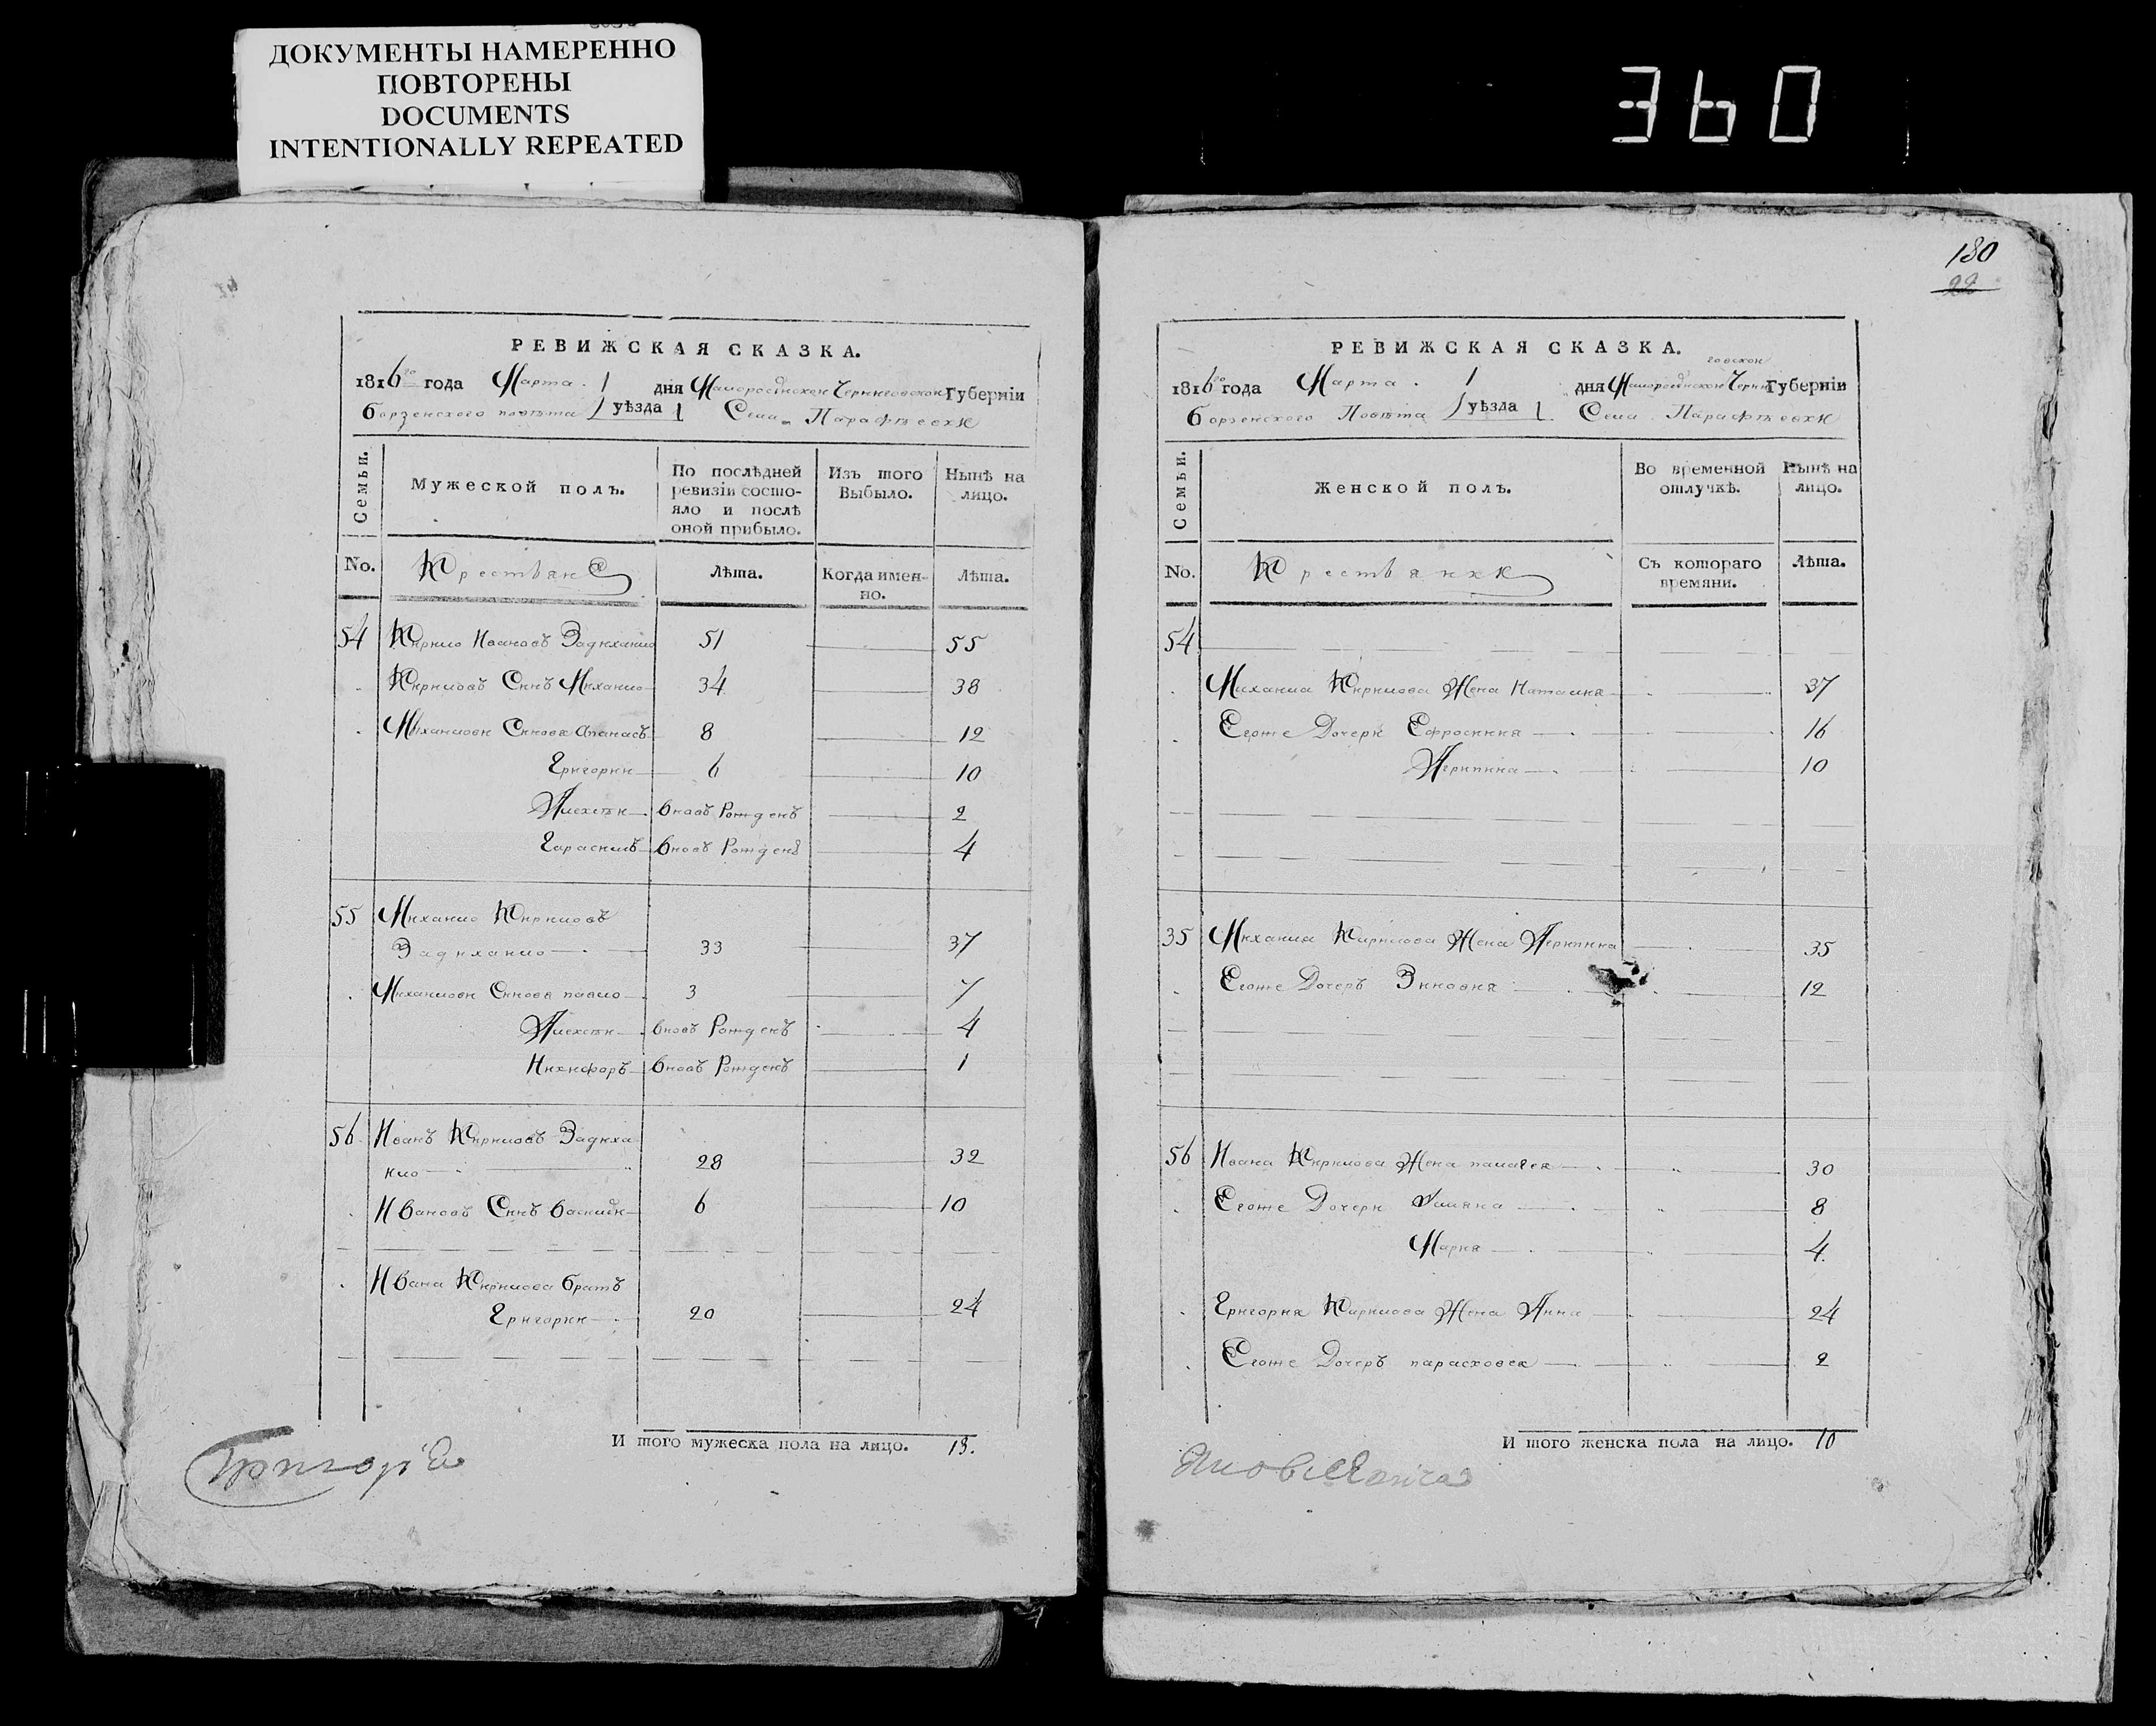 ДОКУМЕНТЫ НАМЕРЕННО
ПОВТОРЕНЫ
DOCUMENTS
INTENTIONALLY REPEATED
360
РЕВИЖСКАЯ СКАЗКА.
1816го года Марта 1 дня Малоросійской Черниговской Губерніи
Борзенского повѣта уѣзда Села Парафѣевки
Семьи.
Мужеской полъ.
По послѣдней ревизіи состояло и послѣ оной прибыло.
Изъ того Выбыло.
Нынѣ на лицо.
No.
Крестьяне
Лѣта.
Когда именно.
Лѣта.
54 Кирило Ивановъ Задихайло 51 55
Кириловъ Синъ Михайло 34 38
Михайлови Синовя Апанасъ 8 12
Григорій 6 10
Алексѣй вновъ Рожденъ 2
Гарасимъ вновъ Рожденъ 4
55 Михайло Кириловъ
Задихайло 33 37
Михайлови Синовя павло 3 7
Алексѣй вновъ Рожденъ 4
Никифоръ вновъ Рожденъ 1
56 Иванъ Кириловъ Задиха
йло 28 32
Ивановъ Синъ василій 6 10
Ивана Кирилова братъ
Григорій 20 24
И того мужеска пола на лицо. 13.
Григорій
180
22
РЕВИЖСКАЯ СКАЗКА.
говской
1816го года Марта 1 дня Малоросійской Черни Губерніи
Борзенского Повѣта уѣзда Села Парафѣевки
Семьи.
Женской полъ.
Во временной отлучкѣ.
Нынѣ на лицо.
No.
Крестьянки
Съ котораго времяни.
Лѣта.
54
Михайла Кирилова Жена Наталия 37
Егоже Дочери Ефросиния 16
Агрипина 10
35 Михайла Кирилова Жена Агрипина 35
Егоже Дочеръ Зиновия 12
56 Ивана Кирилова Жена палагея 30
Егоже Дочери Уляна 8
Мария 4
Григория Кирилова Жена Анна 24
Егоже Дочеръ парасковея 2
И того женска пола на лицо. 10